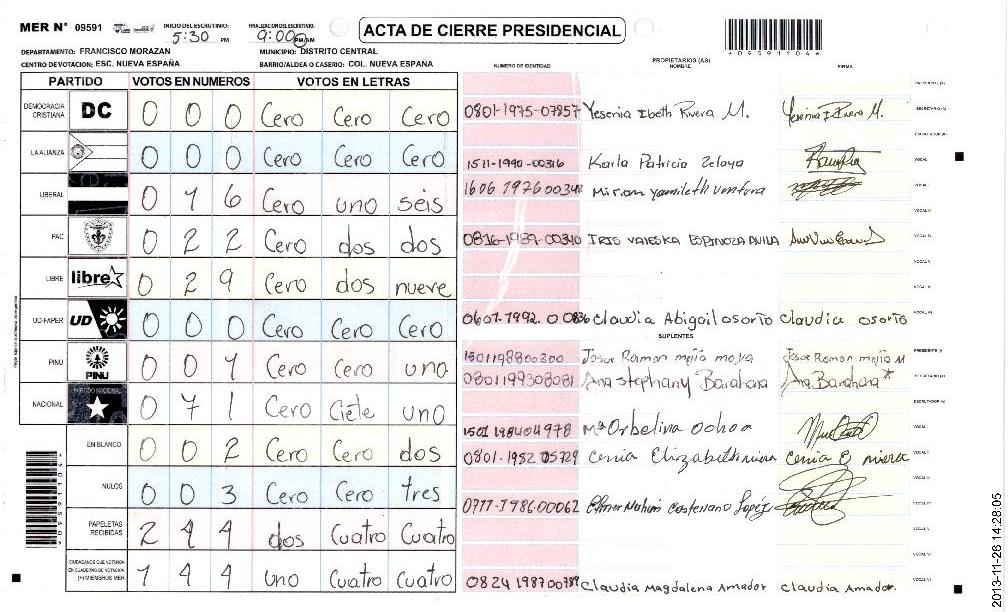 MER N° 09591
INICIO DEL ESCRUTINIO:
5:30 PM
FINALIZACION DEL ESCRUTINIO:
9:00 PM/AM
ACTA DE CIERRE PRESIDENCIAL
DEPARTAMENTO: FRANCISCO MORAZAN
MUNICIPIO: DISTRITO CENTRAL
CENTRO DE VOTACION: ESC. NUEVA ESPAÑA
BARRIO/ALDEA O CASERIO: COL. NUEVA ESPAÑA
PARTIDO VOTOS EN NUMEROS VOTOS EN LETRAS
NUMERO DE IDENTIDAD
PROPIETARIOS (AS)
NOMBRE
FIRMA
DEMOCRACIA CRISTIANA DC 0 0 0 Cero Cero Cero
0801-1975-07857 Yesenia Ibeth Rivera M. Yesenia I Rivera M.
LA ALIANZA 0 0 0 Cero Cero Cero
1511-1990-00316 Karla Patricia Zelaya
LIBERAL 0 1 6 Cero uno seis
1606 1976 00348 Miriam Yamileth ventura
PAC 0 2 2 Cero dos dos
0816-1987-00340 IRIS VALESKA ESPINOZA AVILA
LIBRE libre 0 2 9 Cero dos nueve
UD-FAPER UD 0 0 0 Cero Cero Cero
0601-1992-0 0836 Claudia Abigail osorto Claudia osorto
SUPLENTES
PINU PINU 0 0 1 Cero Cero uno
1501198800300 Josue Ramon mejia moya Josue Ramon mejia M
0801199308081 Ana stephany Barahona Ana Barahona
NACIONAL PARTIDO NACIONAL 0 7 1 Cero Ciete uno
1501 198404978 Mª Orbelina Ochoa
EN BLANCO 0 0 2 Cero Cero dos
0801-1952 05729
NULOS 0 0 3 Cero Cero tres
0777-1986-00062 Castellano Lopéz
PAPELETAS RECIBIDAS 2 4 4 dos Cuatro Cuatro
CIUDADANOS QUE VOTARON EN CUADERNO DE VOTACION (+) MIEMBROS MER 1 4 4 uno Cuatro Cuatro
0824 1987 00789 Claudia Magdalena Amador Claudia Amador.
2013-11-26 14:28:05